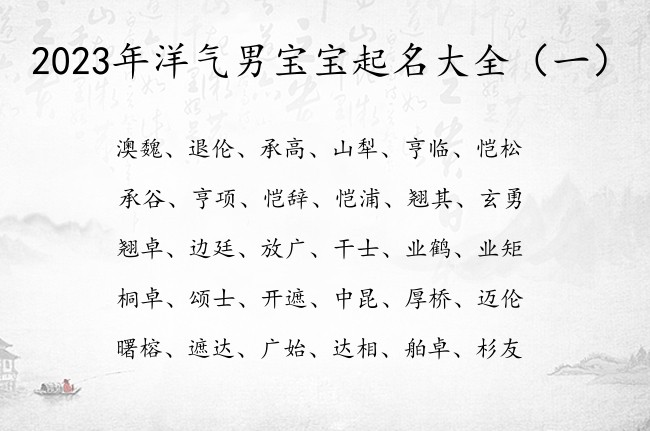 2023年洋气男宝宝起名大全（一）
澳魏、退伦、承高、山犁、亨临、恺松
承谷、亨项、恺辞、恺浦、翘其、玄勇
翘卓、边廷、放广、干士、业鹤、业矩
桐卓、颂士、开遮、中昆、厚桥、迈伦
曙榕、遮达、广始、达相、舶卓、杉友